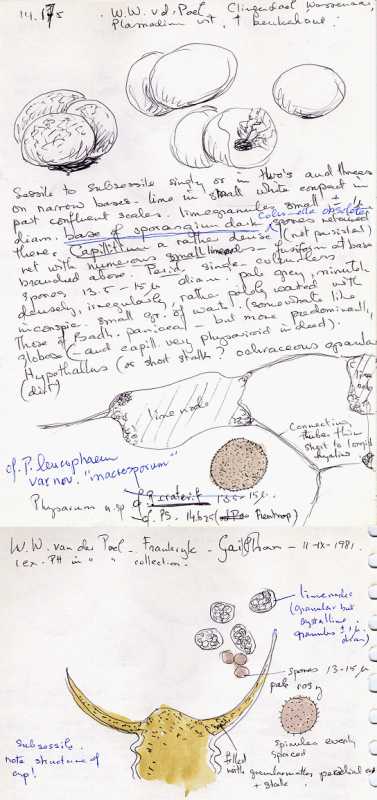 14.175
W.W. v.d. Poel. Clingendael, Wassenaar,
Plasmodium wit, † beukehout.
Sessile to subsessile singly or in two's and threes
on narrow bases. Lime in small white compact in
part confluent scales. Limegranules small ± 1 μ
diam. base of sporangium dark, spores retained
there. Columella obsolete
Capillitium a rather dense (not persistent)
net with numerous small nodes fusiform at base
branched above. Perid. single colourless
spores 13.5 - 15 μ diam. pale grey, minutely
densely, irregularly, rather palely warted with
inconspic. small gr. of warts. (somewhat like
those of Badh. panicea - but more predominantly
globose (- and capill. very physaroid indeed).
Hypothallus (or short stalk? ochraceous granular
(dirt)
lime node
lime node
Connecting
tubes thin
short to long
hyaline.
cf. P. leucophaeum
var nov. "macrosporum"
Physarum n.sp cf P. craterif. 13.5-15 μ.
cf. PS. 14.625 ( Nentrop)
W.W. van der Poel - Frankryk - - 11-IX-1981.
1 ex. PH in " " collection.
lime nodes
(granular but
crystalline
granules ± 1 μ
diam)
spores 13-15 μ
pale rosy
spinules evenly
spaced
Subsessile.
note structure of
cup!
filled
with granular matter peridial at
+ stalk.